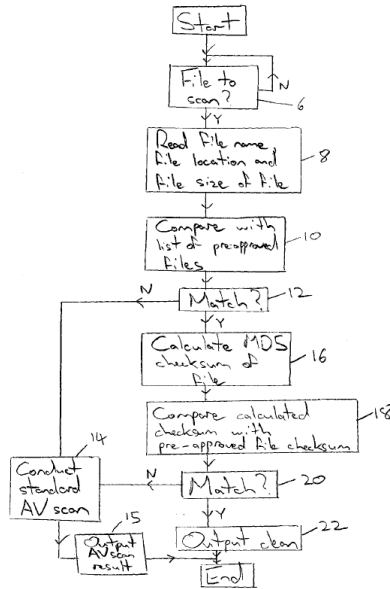 Start
File to
scan?
N
6
Y
Read file name,
file location and
file size of file
8
Compare with
list of preapproved
files
10
N
Match?
12
Y
Calculate MD5
checksum of
file
16
Compare calculated
checksum with
pre-approved file checksum
18
14
Conduct
standard
AV scan
N
Match?
20
Y
15
Output
AV scan
result
Output clean
22
End